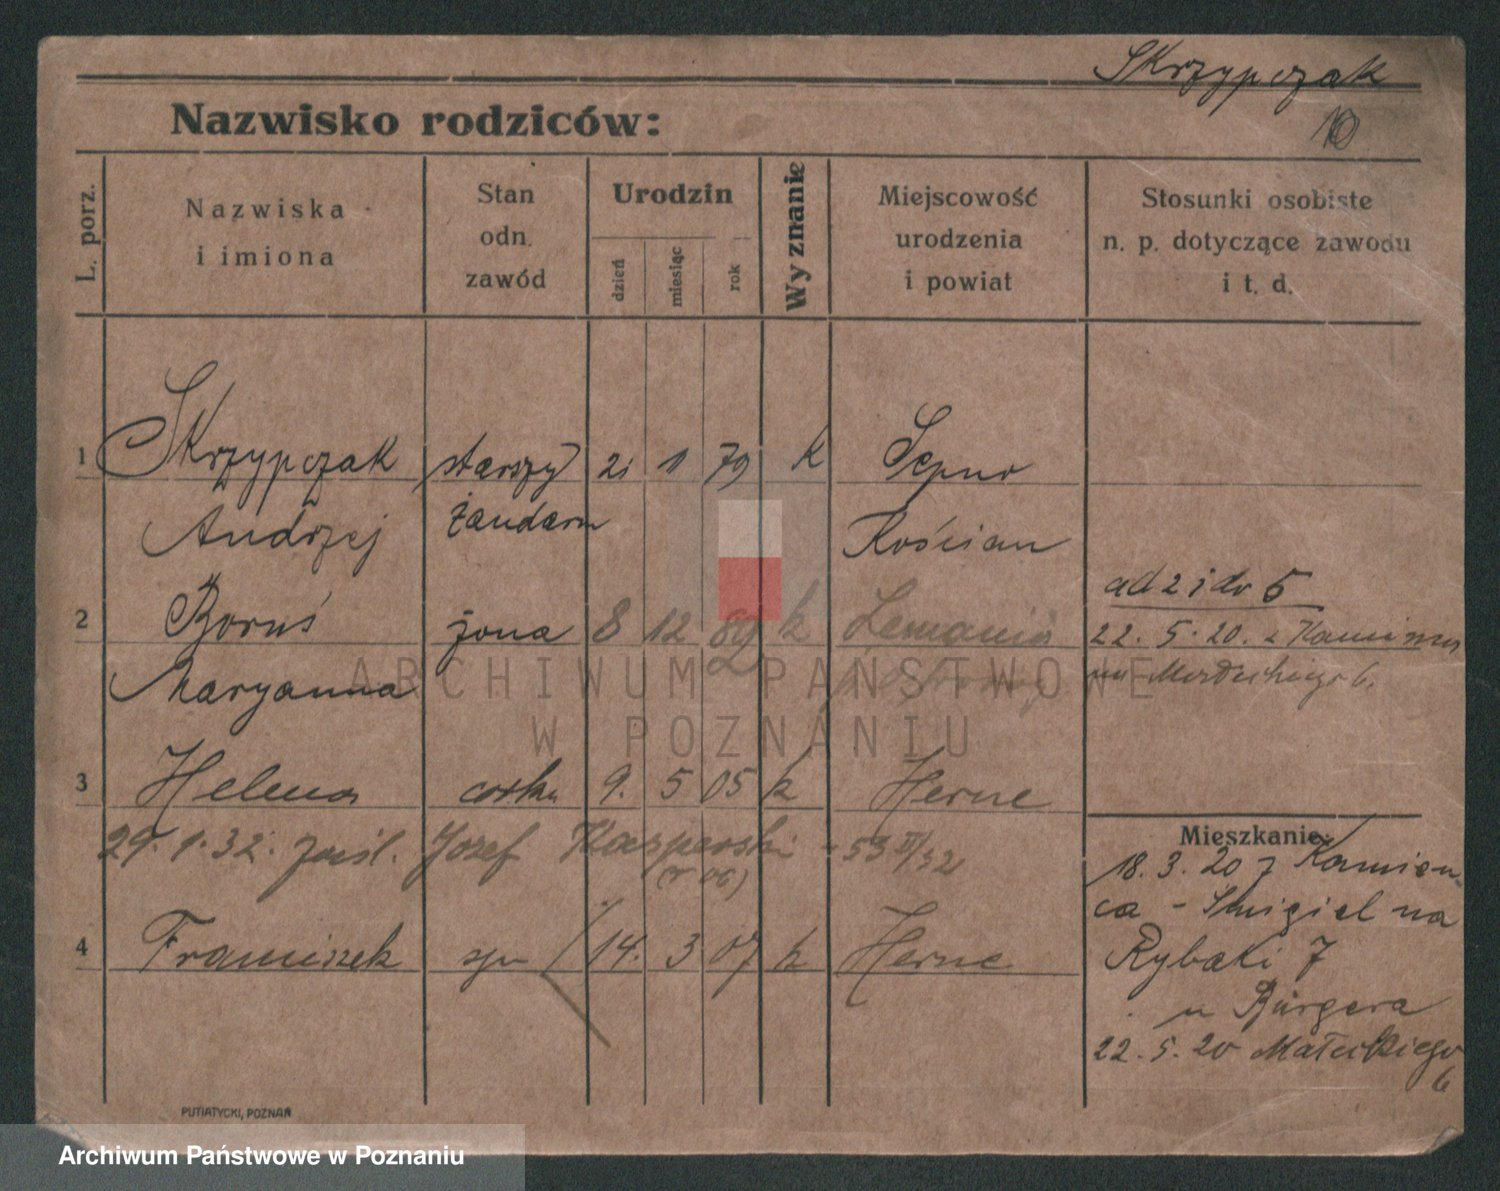 Skrzypczak
10
Nazwisko rodziców:
L. porz.
Nazwiska i imiona
Stan odn. zawód
Urodzin
dzień
miesiąc
rok
Wyznanie
Miejscowość urodzenia i powiat
Stosunki osobiste n. p. dotyczące zawodu i t. d.
1 Skrzypczak starszy 21 11 79 k Sepno
Andrzej żandarm Kościan
ad 2 i do 5
2 Boruś żona 8 12 k
22. 5. 20. z
Maryanna
6.
3 Helena córka 9. 5 05 k Herne
29. 1. 32. Józef Kasperski
(r 06)
4 Franciszek syn 14. 3 07 k Herne
Mieszkanie:
18. 3. 20 z Kamien-
ca - Śmigiel na
Rybaki 7
u Bürgera
22. 5. 20 Małeckiego
6
PUTIATYCKI, POZNAŃ
ARCHIWUM PAŃSTWOWE
W POZNANIU
Archiwum Państwowe w Poznaniu